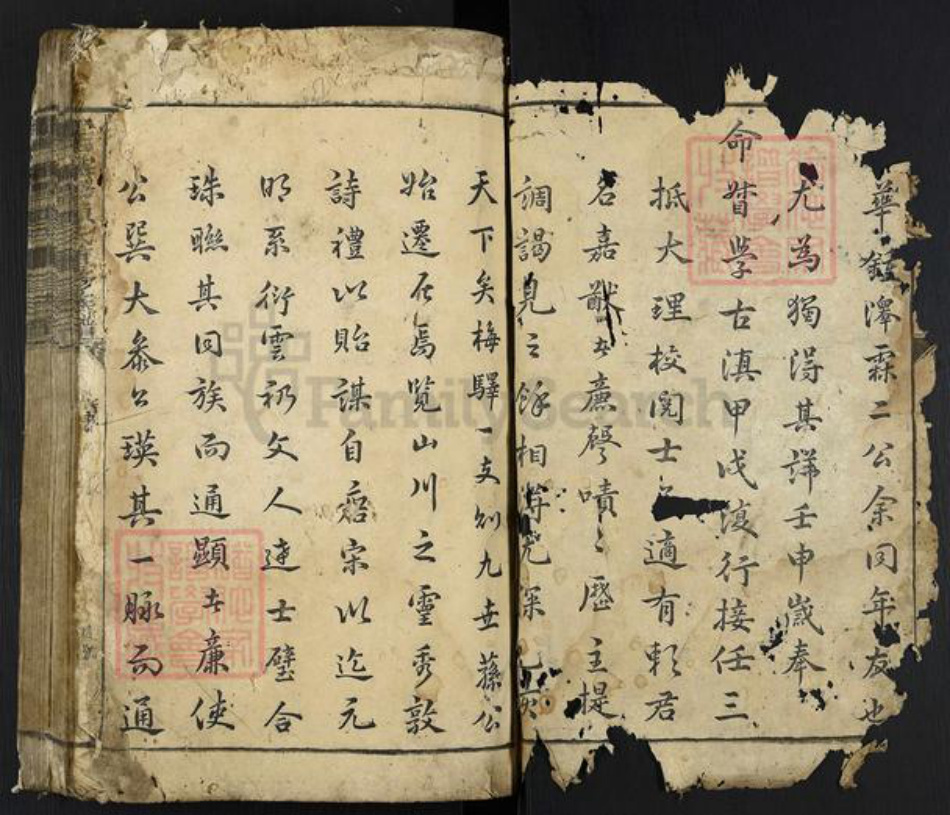 華鍾澤霖二公余同年友也
尤為獨得其詳壬申歲奉
命督學古滇甲戌復行接任三
抵大理校閱士適有賴君
名嘉猷者廉聲嘖〻歷主提
調謁見之餘相深
天下矣梅驛一支則九世蓀公
始遷居焉覽山川之靈秀敦
詩禮以貽謀自宋以迄元
明系衍雲礽文人達士璧合
珠聯其同族而通顯者廉使
公巽大叅公瑛其一脉而通
FamilySearch